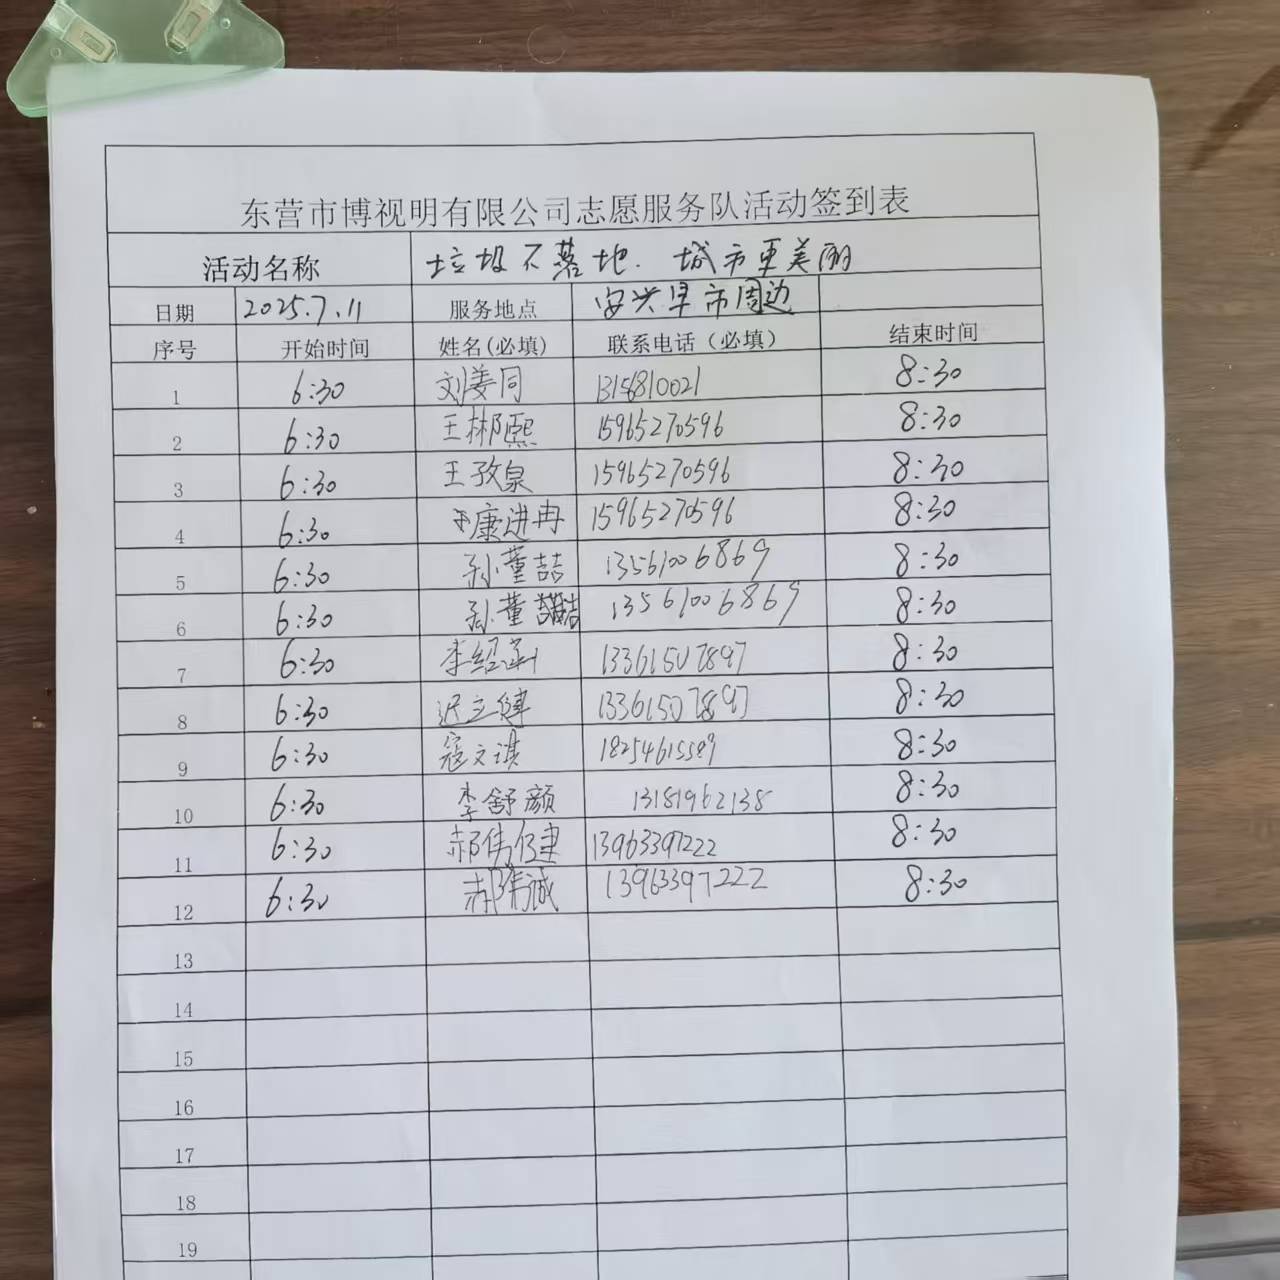 东营市博视明有限公司志愿服务队活动签到表
活动名称 垃圾不落地.城市更美丽
日期 2025.7.11 服务地点 安兴早市周边
序号 开始时间 姓名(必填) 联系电话（必填） 结束时间
1 6:30 刘姜同 1315810021 8:30
2 6:30 王彬熙 15965270596 8:30
3 6:30 王孜泉 15965270596 8:30
4 6:30 康进冉 15965270596 8:30
5 6:30 孙董喆 13561006869 8:30
6 6:30 孙董 13561006869 8:30
7 6:30 李绍 13361507897 8:30
8 6:30 迟立 13361507897 8:30
9 6:30 寇文琪 18254615589 8:30
10 6:30 李舒颜 13181962138 8:30
11 6:30 郝伟健 13963397222 8:30
12 6:30 郝伟诚 13963397222 8:30
13
14
15
16
17
18
19